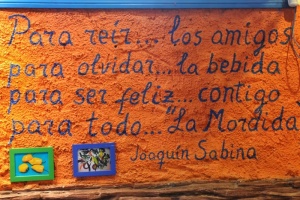 Para reír... los amigos
para olvidar... la bebida
para ser feliz... contigo
para todo... "La Mordida
Joaquín Sabina